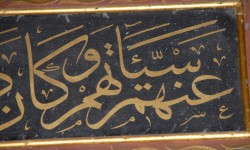 عنهم سيئاتهم وكان